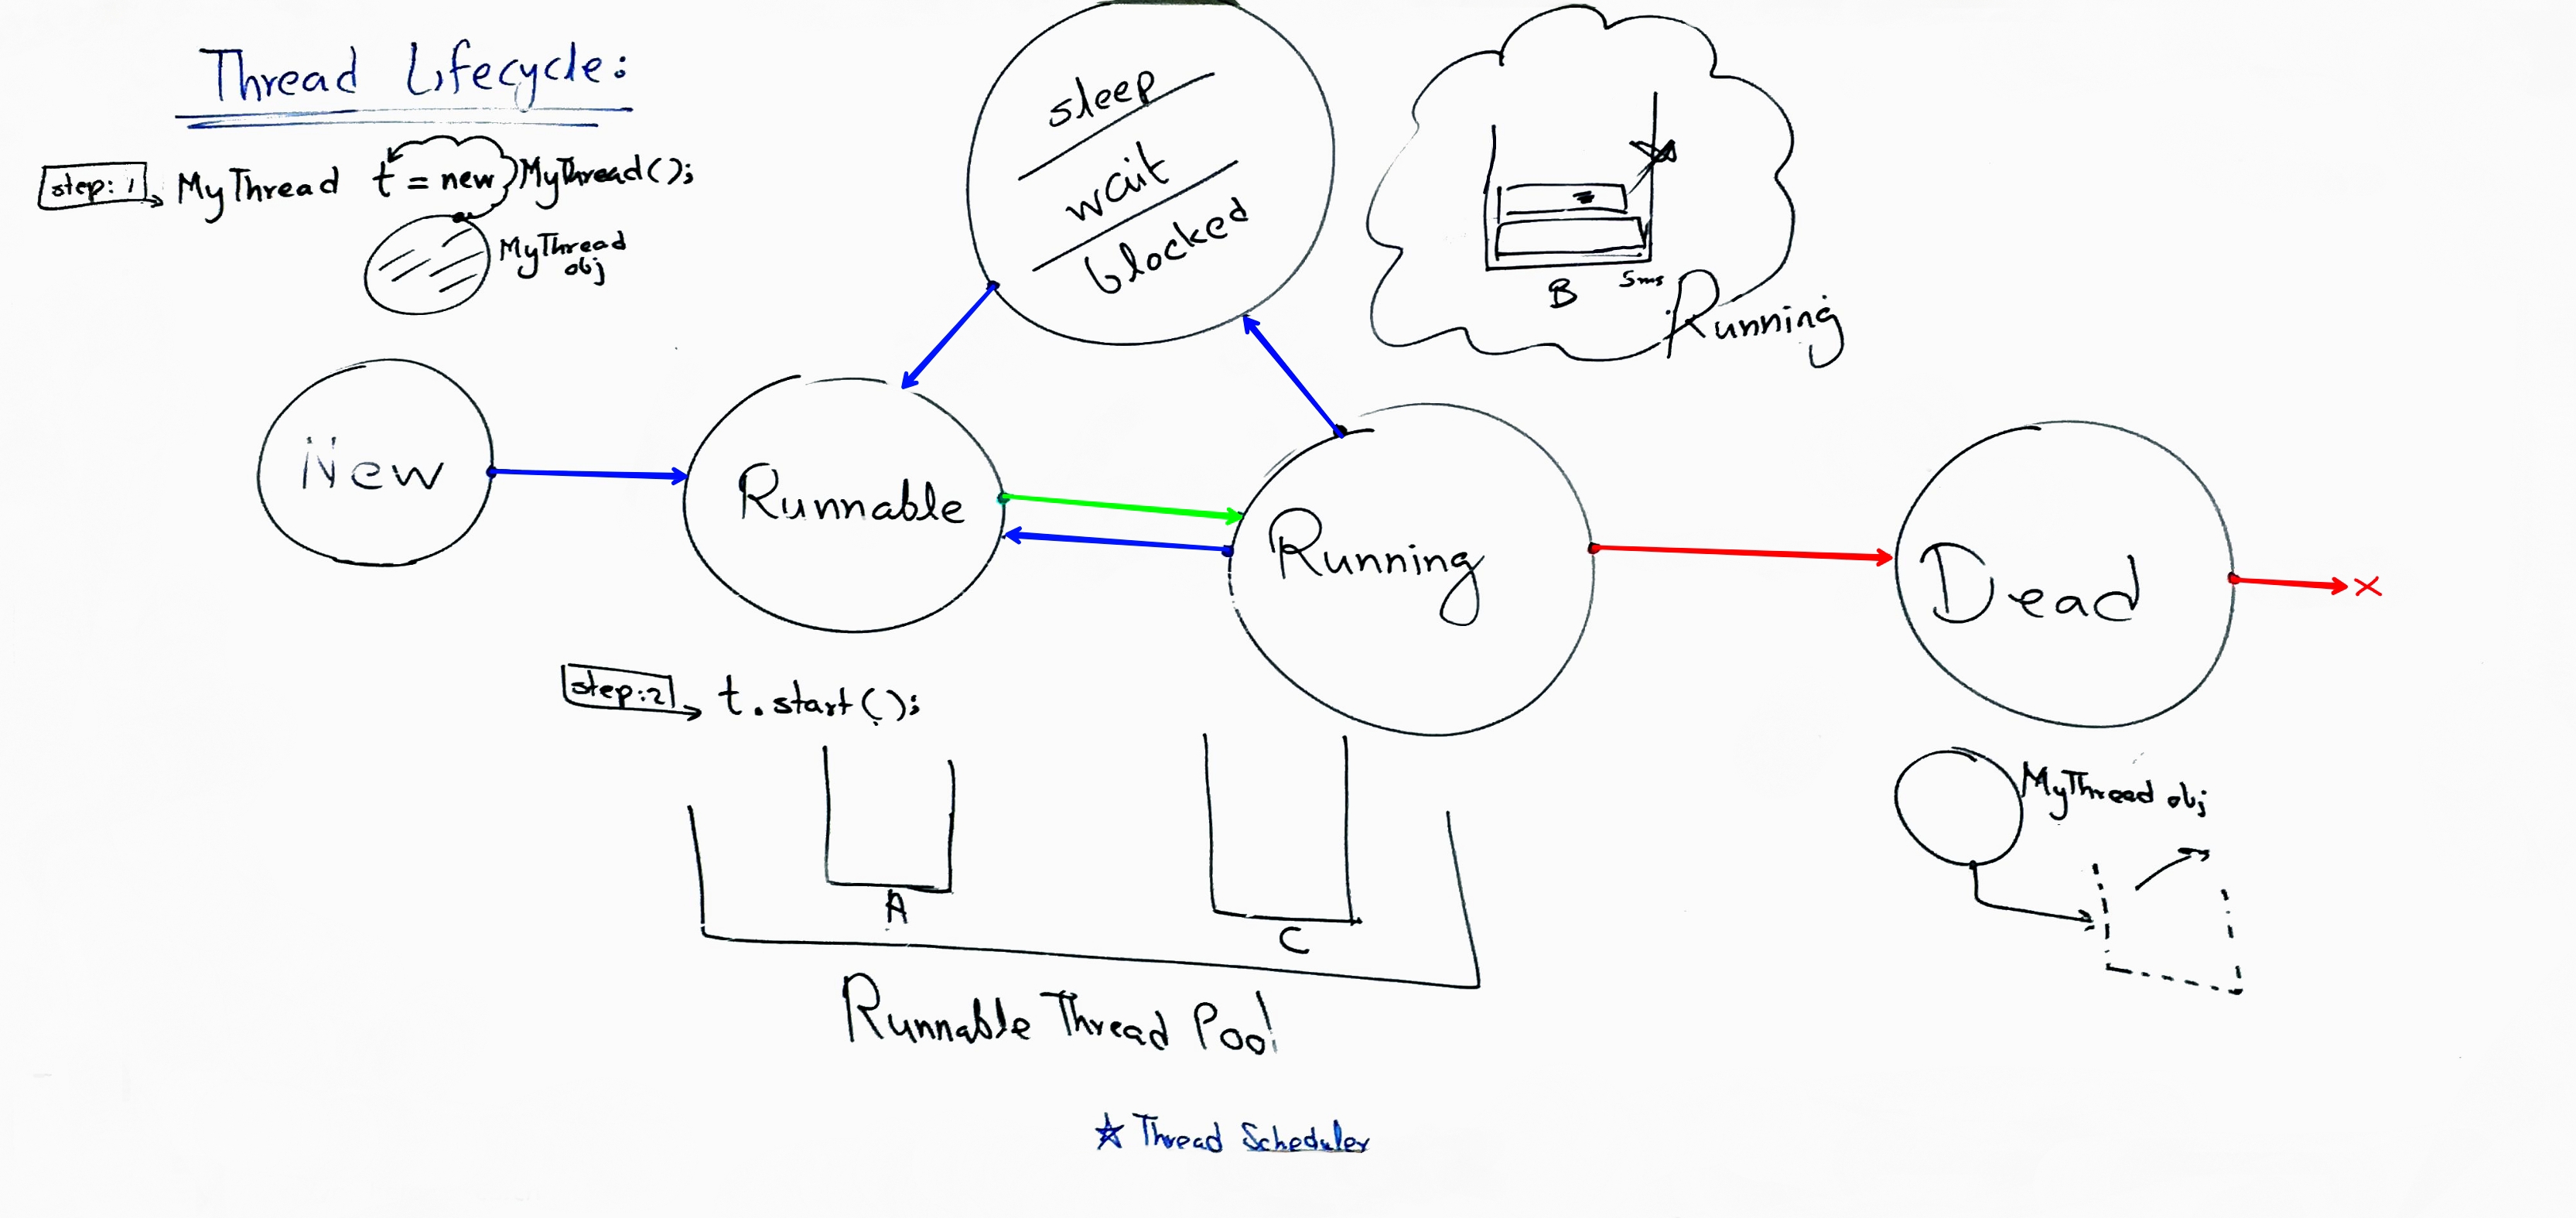 Thread Lifecycle:
step: 1 MyThread t = new MyThread();
MyThread
obj
sleep
wait
blocked
B 5ms
Running
New
Runnable
Running
Dead
x
step:2 t.start();
A
C
Runnable Thread Pool
MyThread obj
☆ Thread Scheduler